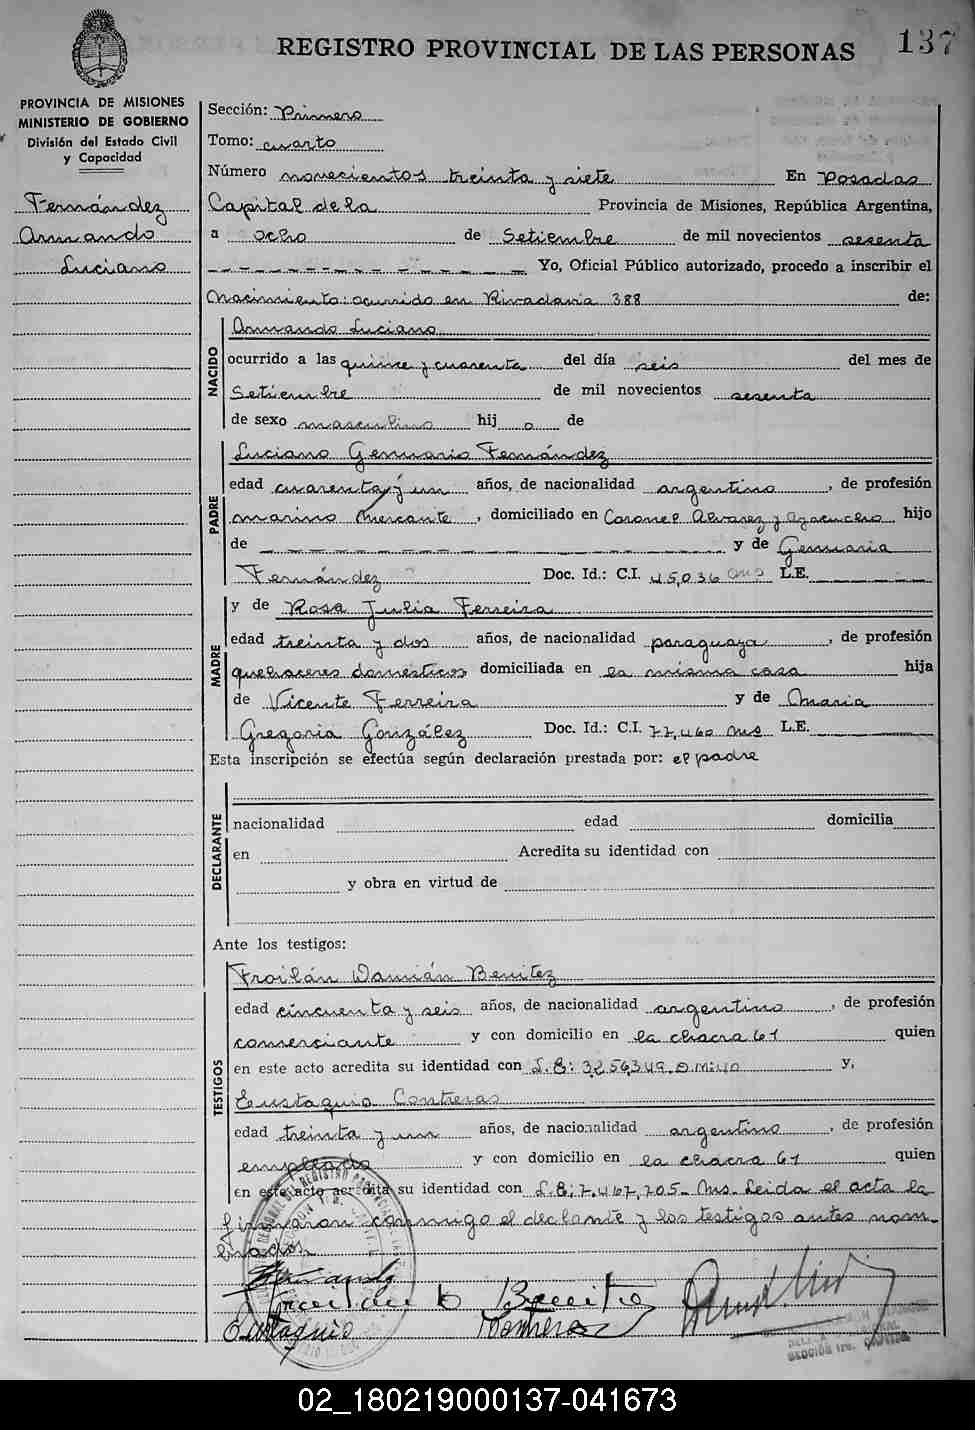 REGISTRO PROVINCIAL DE LAS PERSONAS
137
PROVINCIA DE MISIONES
MINISTERIO DE GOBIERNO
División del Estado Civil
y Capacidad
Fernández
Armando
Luciano
Sección: Primera
Tomo: cuarto
Número novecientos treinta y siete En Posadas
Capital de la Provincia de Misiones, República Argentina,
a ocho de Setiembre de mil novecientos sesenta
Yo, Oficial Público autorizado, procedo a inscribir el
Nacimiento: ocurrido en Rivadavia 388 de:
NACIDO
Armando Luciano
ocurrido a las quince y cuarenta del día seis del mes de
Setiembre de mil novecientos sesenta
de sexo masculino hij o de
PADRE
Luciano Genuario Fernández
edad cuarenta y un años, de nacionalidad argentino, de profesión
marino mercante, domiciliado en Coronel Alvarez y Ayacucho hijo
de y de Genuaria
Fernández Doc. Id.: C.I. 45,036 Mns L.E.
MADRE
y de Rosa Julia Ferreira
edad treinta y dos años, de nacionalidad paraguaya, de profesión
quehaceres domésticos domiciliada en la misma casa hija
de Vicente Ferreira y de Maria
Gregoria González Doc. Id.: C.I. 77,460 Mns L.E.
Esta inscripción se efectúa según declaración prestada por: el padre
DECLARANTE
nacionalidad edad domicilia
en Acredita su identidad con
y obra en virtud de
Ante los testigos:
TESTIGOS
Froilán Damián Benitez
edad cincuenta y seis años, de nacionalidad argentino, de profesión
comerciante y con domicilio en la chacra 61 quien
en este acto acredita su identidad con L.E: 3,256,349. D.M: 40 y,
Eustaquio Contreras
edad treinta y un años, de nacionalidad argentino, de profesión
empleado y con domicilio en la chacra 61 quien
en este acto acredita su identidad con L.E: 7.467,705- Mns. Leida el acta la
firmaron conmigo el declante y los testigos antes nom-
brados
Fernandez
Froilan D Benitez
Eustaquio Contreras
SECCIÓN 1ra. CAPITAL
02_180219000137-041673